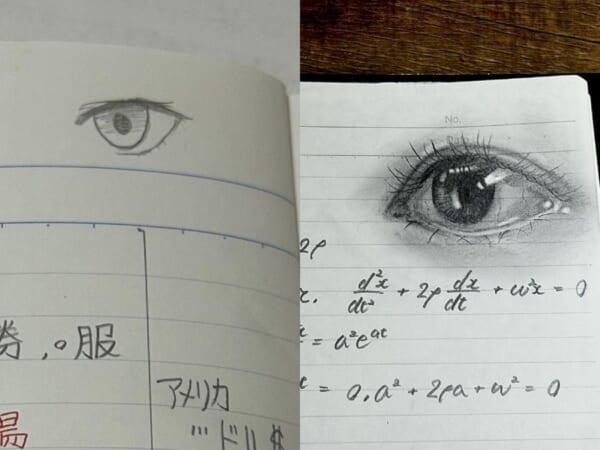 券,。服
アメリカ
ドル$
No.
2ρ
d²x/dt² + 2ρ dx/dt + ω²x = 0
= a²e^{at}
= 0, a² + 2ρa + ω² = 0